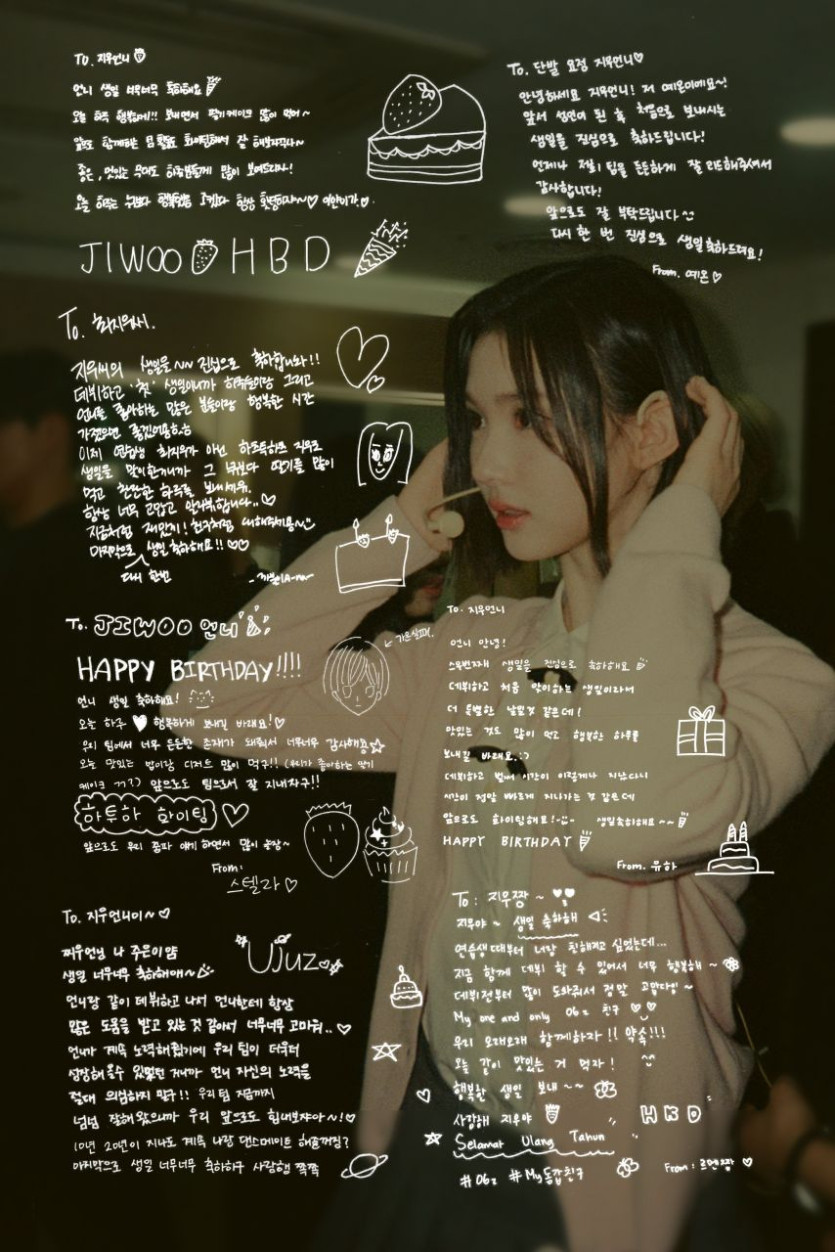 To. 지우언니
언니 생일 너무너무 축하해요
오늘 하루 행복하게!! 보내면서 딸기케이크 많이 먹어~
앞으로 함께하는 잘 해보자구나~
좋은, 멋있는 무대도 많이 보여드리자!
오늘 하루는 누구보다 행복하길 항상 ♡ 이안이가.♡
JIWOO HBD
To. 단발 요정 지우언니♡
안녕하세요 지우언니! 저 예온이에요~!
앞서 성인이 된 후 처음으로 보내시는
생일을 진심으로 축하드립니다!
언제나 저희 팀을 든든하게 잘 리드해주셔서
감사합니다!
앞으로도 잘 부탁드립니다
다시 한 번 진심으로 생일축하드려요!
From. 예온♡
To. 최지우씨.
지우씨의 생일을 진심으로 축하합니다!!
데뷔하고 '첫' 생일이니까 하츄들이랑 그리고
언니를 좋아하는 많은 분들이랑 행복한 시간
가졌으면 좋겠어용ㅎㅎ
이제 연습생 최지우가 아닌 하츄투하츄 지우로
생일을 맞이한거니까 그 누구보다 딸기를 많이
먹고 하루를 보내세유.
항상 너무 고맙고 ♡
지금처럼 재밌자! 친구처럼
마지막으로 생일 축하해요!! ♡♡
다시 한번
To. JIWOO 언니
HAPPY BIRTHDAY!!!!
가을살뮈.
언니 생일 축하해요!
오늘 하루 ♥ 행복하게 보내길 바래요!♡
우리 팀에서 너무 든든한 존재가 돼줘서 너무너무 감사해죠☆
오늘 맛있는 밥이랑 디저트 많이 먹구!! (우리가 좋아하는 딸기
케이크 ㄲ?) 앞으로도 팀으로서 잘 지내자구!!
하투하 화이팅 ♡
앞으로도 우리 얘기 하면서 많이 놀장~
From:
스텔라♡
To. 지우언니
언니 안녕!
스무번째 생일을 진심으로 축하해요
데뷔하고 처음 맞이하는 생일이라서
더 특별한 날일것 같은데!
맛있는 것도 많이 먹고 행복한 하루를
보내길 바래요.:)
데뷔하고 벌써 시간이 이렇게나 지났다니
시간이 정말 빠르게 지나가는 것 같은데
앞으로도 화이팅해요! 생일축하해요~~
HAPPY BIRTHDAY
From. 유하
To. 지우언니이~♡
찌우언닝 나 주은이얌
생일 너무너무 축하해애~
Ujuz
언니랑 같이 데뷔하고 나서 언니한테 항상
많은 도움을 받고 있는 것 같아서 너무너무 고마워..♡
언니가 계속 노력해줬기에 우리 팀이 더욱더
성장해올수 있었던 거니까 언니 자신의 노력을
절대 의심하지 말구!! 우리팀 지금까지
넘넘 잘해왔으니까 우리 앞으로도 힘내보쟈아~!♡
10년 20년이 지나도 계속 나랑 댄스메이트 해줄꺼징?
마지막으로 생일 너무너무 축하하구 사랑해 쪽쪽
To: 지우짱~♥♥
지우야~ 생일 축하해
연습생때부터 너랑 친해지고 싶었는데...
지금 함께 데뷔 할 수 있어서 너무 행복해~
데뷔전부터 많이 도와줘서 정말 고맙다잉~
My one and only 06z 친구 ♡♡
우리 오래오래 함께하자!! 약속!!!
오늘 같이 맛있는 거 먹자! ^^
행복한 생일 보내~~
사랑해 지우야
HBD
Selamat Ulang Tahun
#06z #My동갑친구
From: 르멘짱 ♡